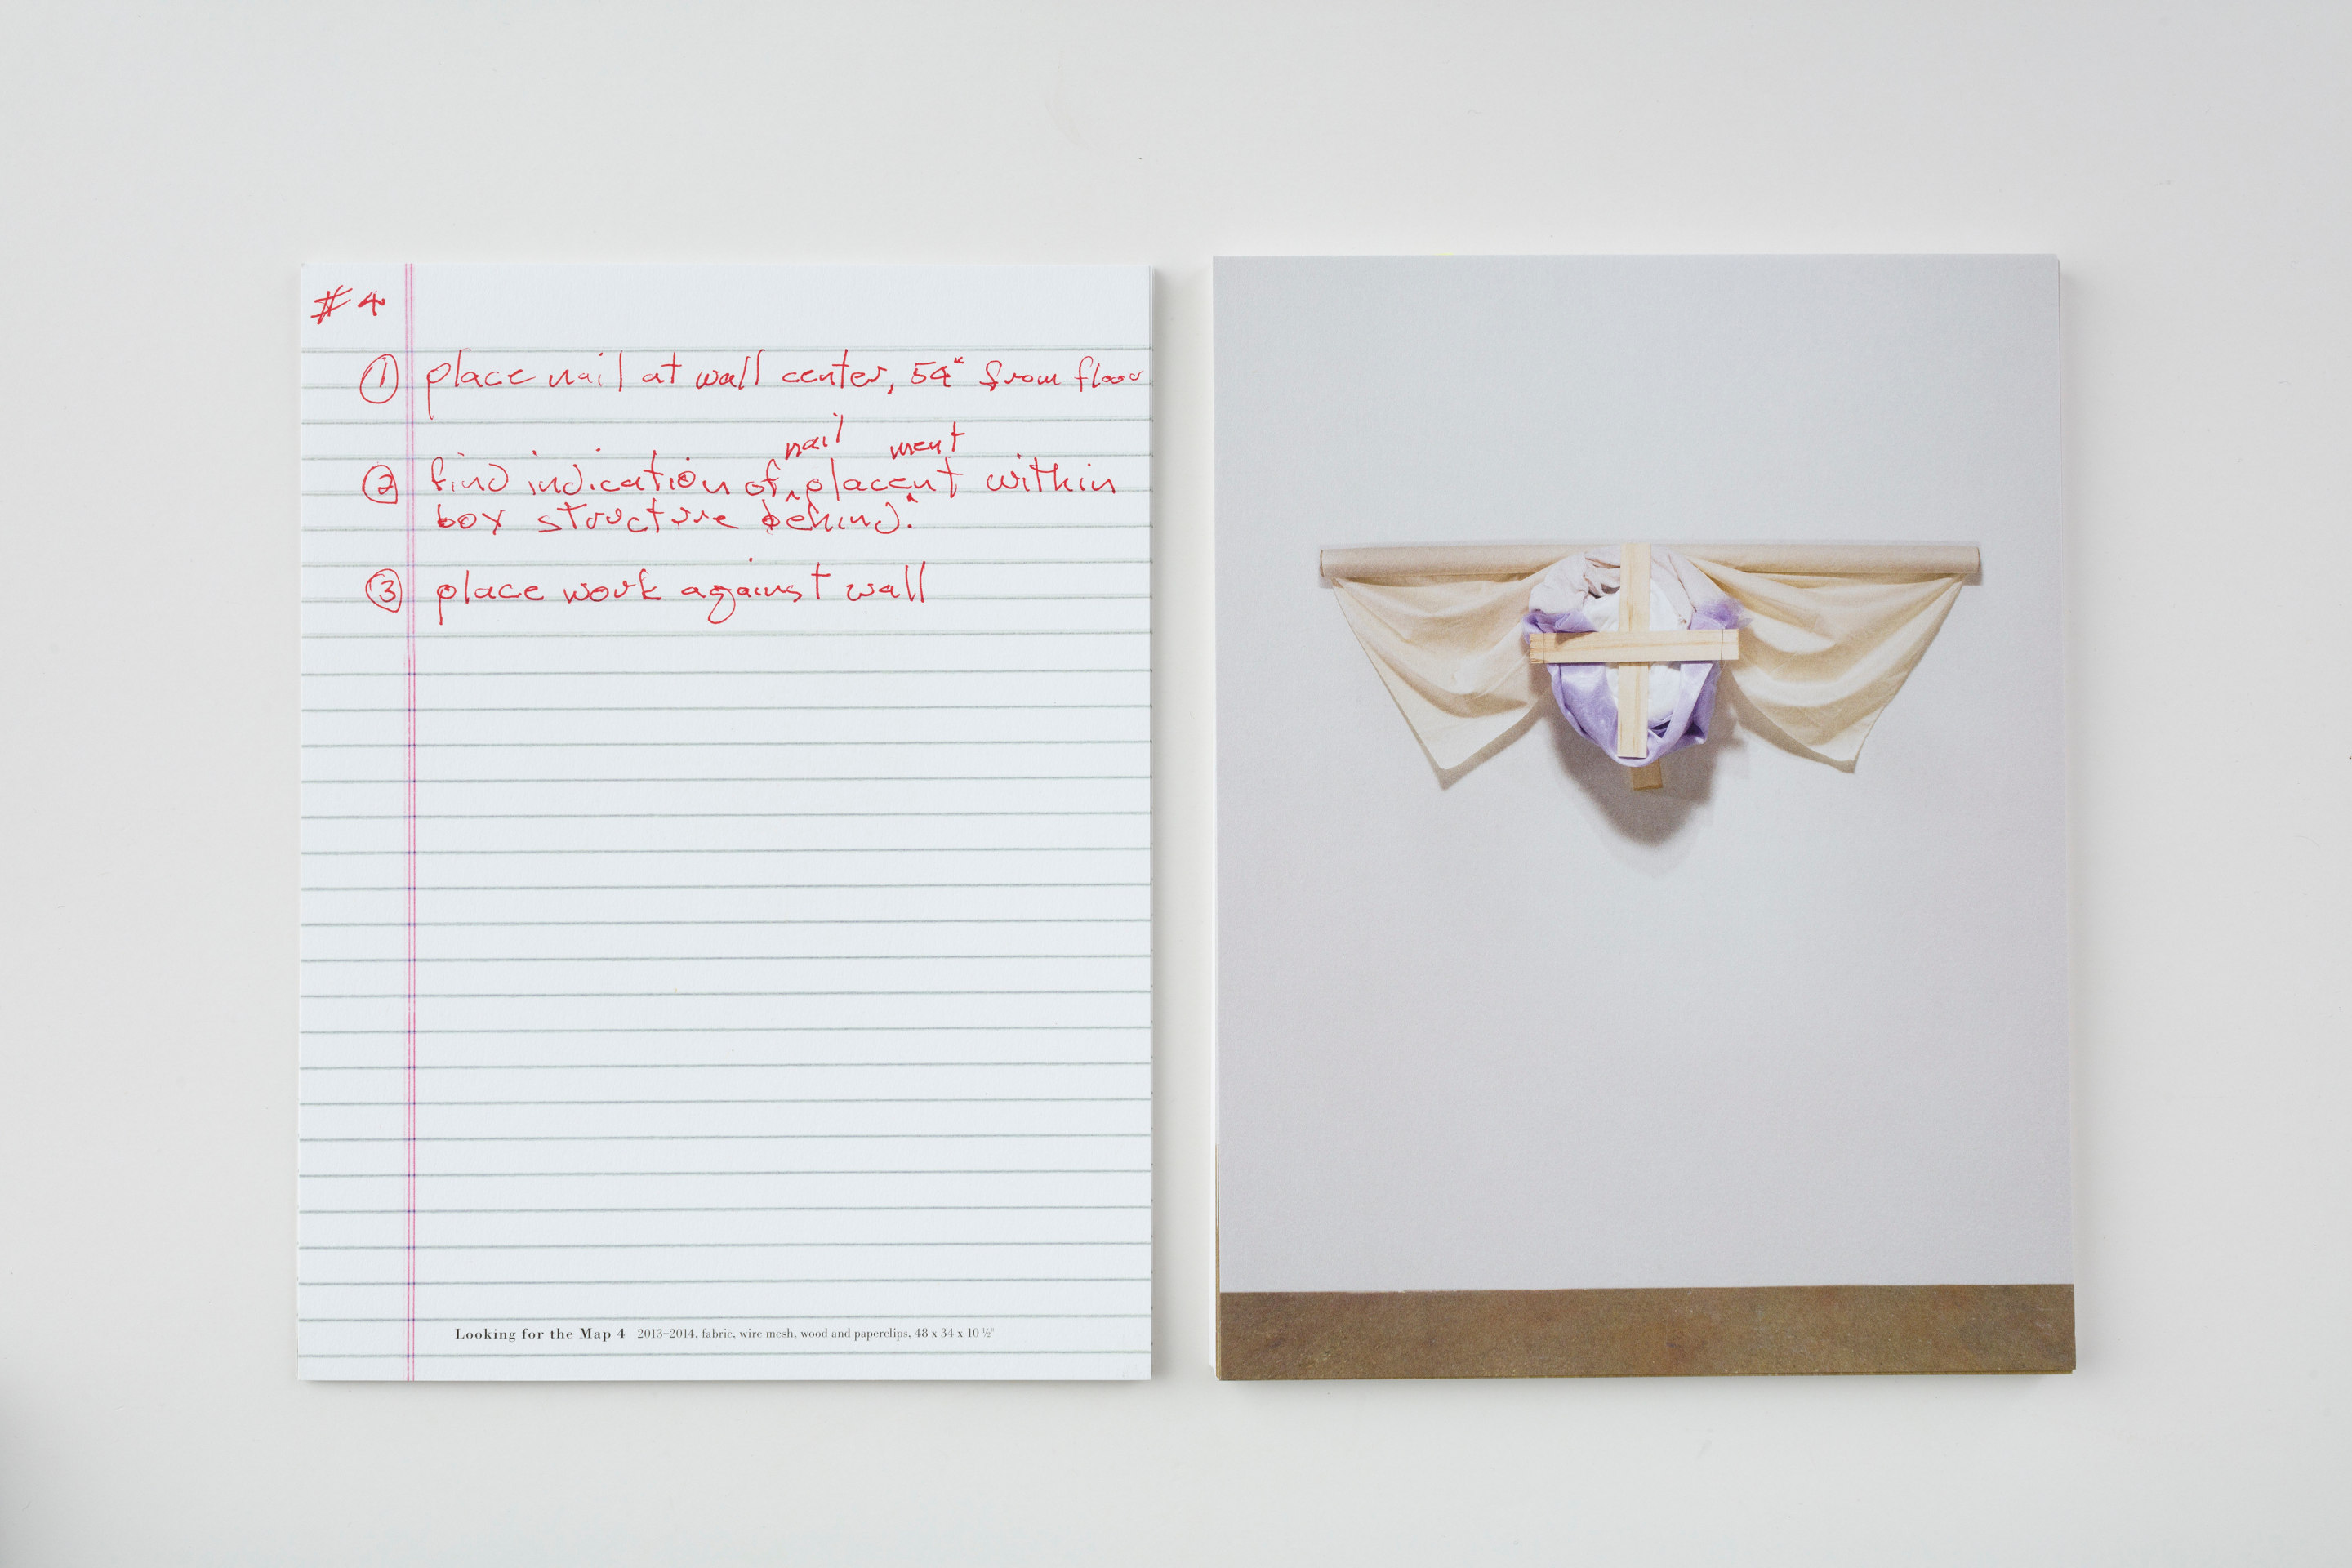 #4
① place nail at wall center, 54" from floor
nail ment
② find indication of ^ placent within
box structure behind.
③ place work against wall
Looking for the Map 4 2013–2014, fabric, wire mesh, wood and paperclips, 48 x 34 x 10 ½"